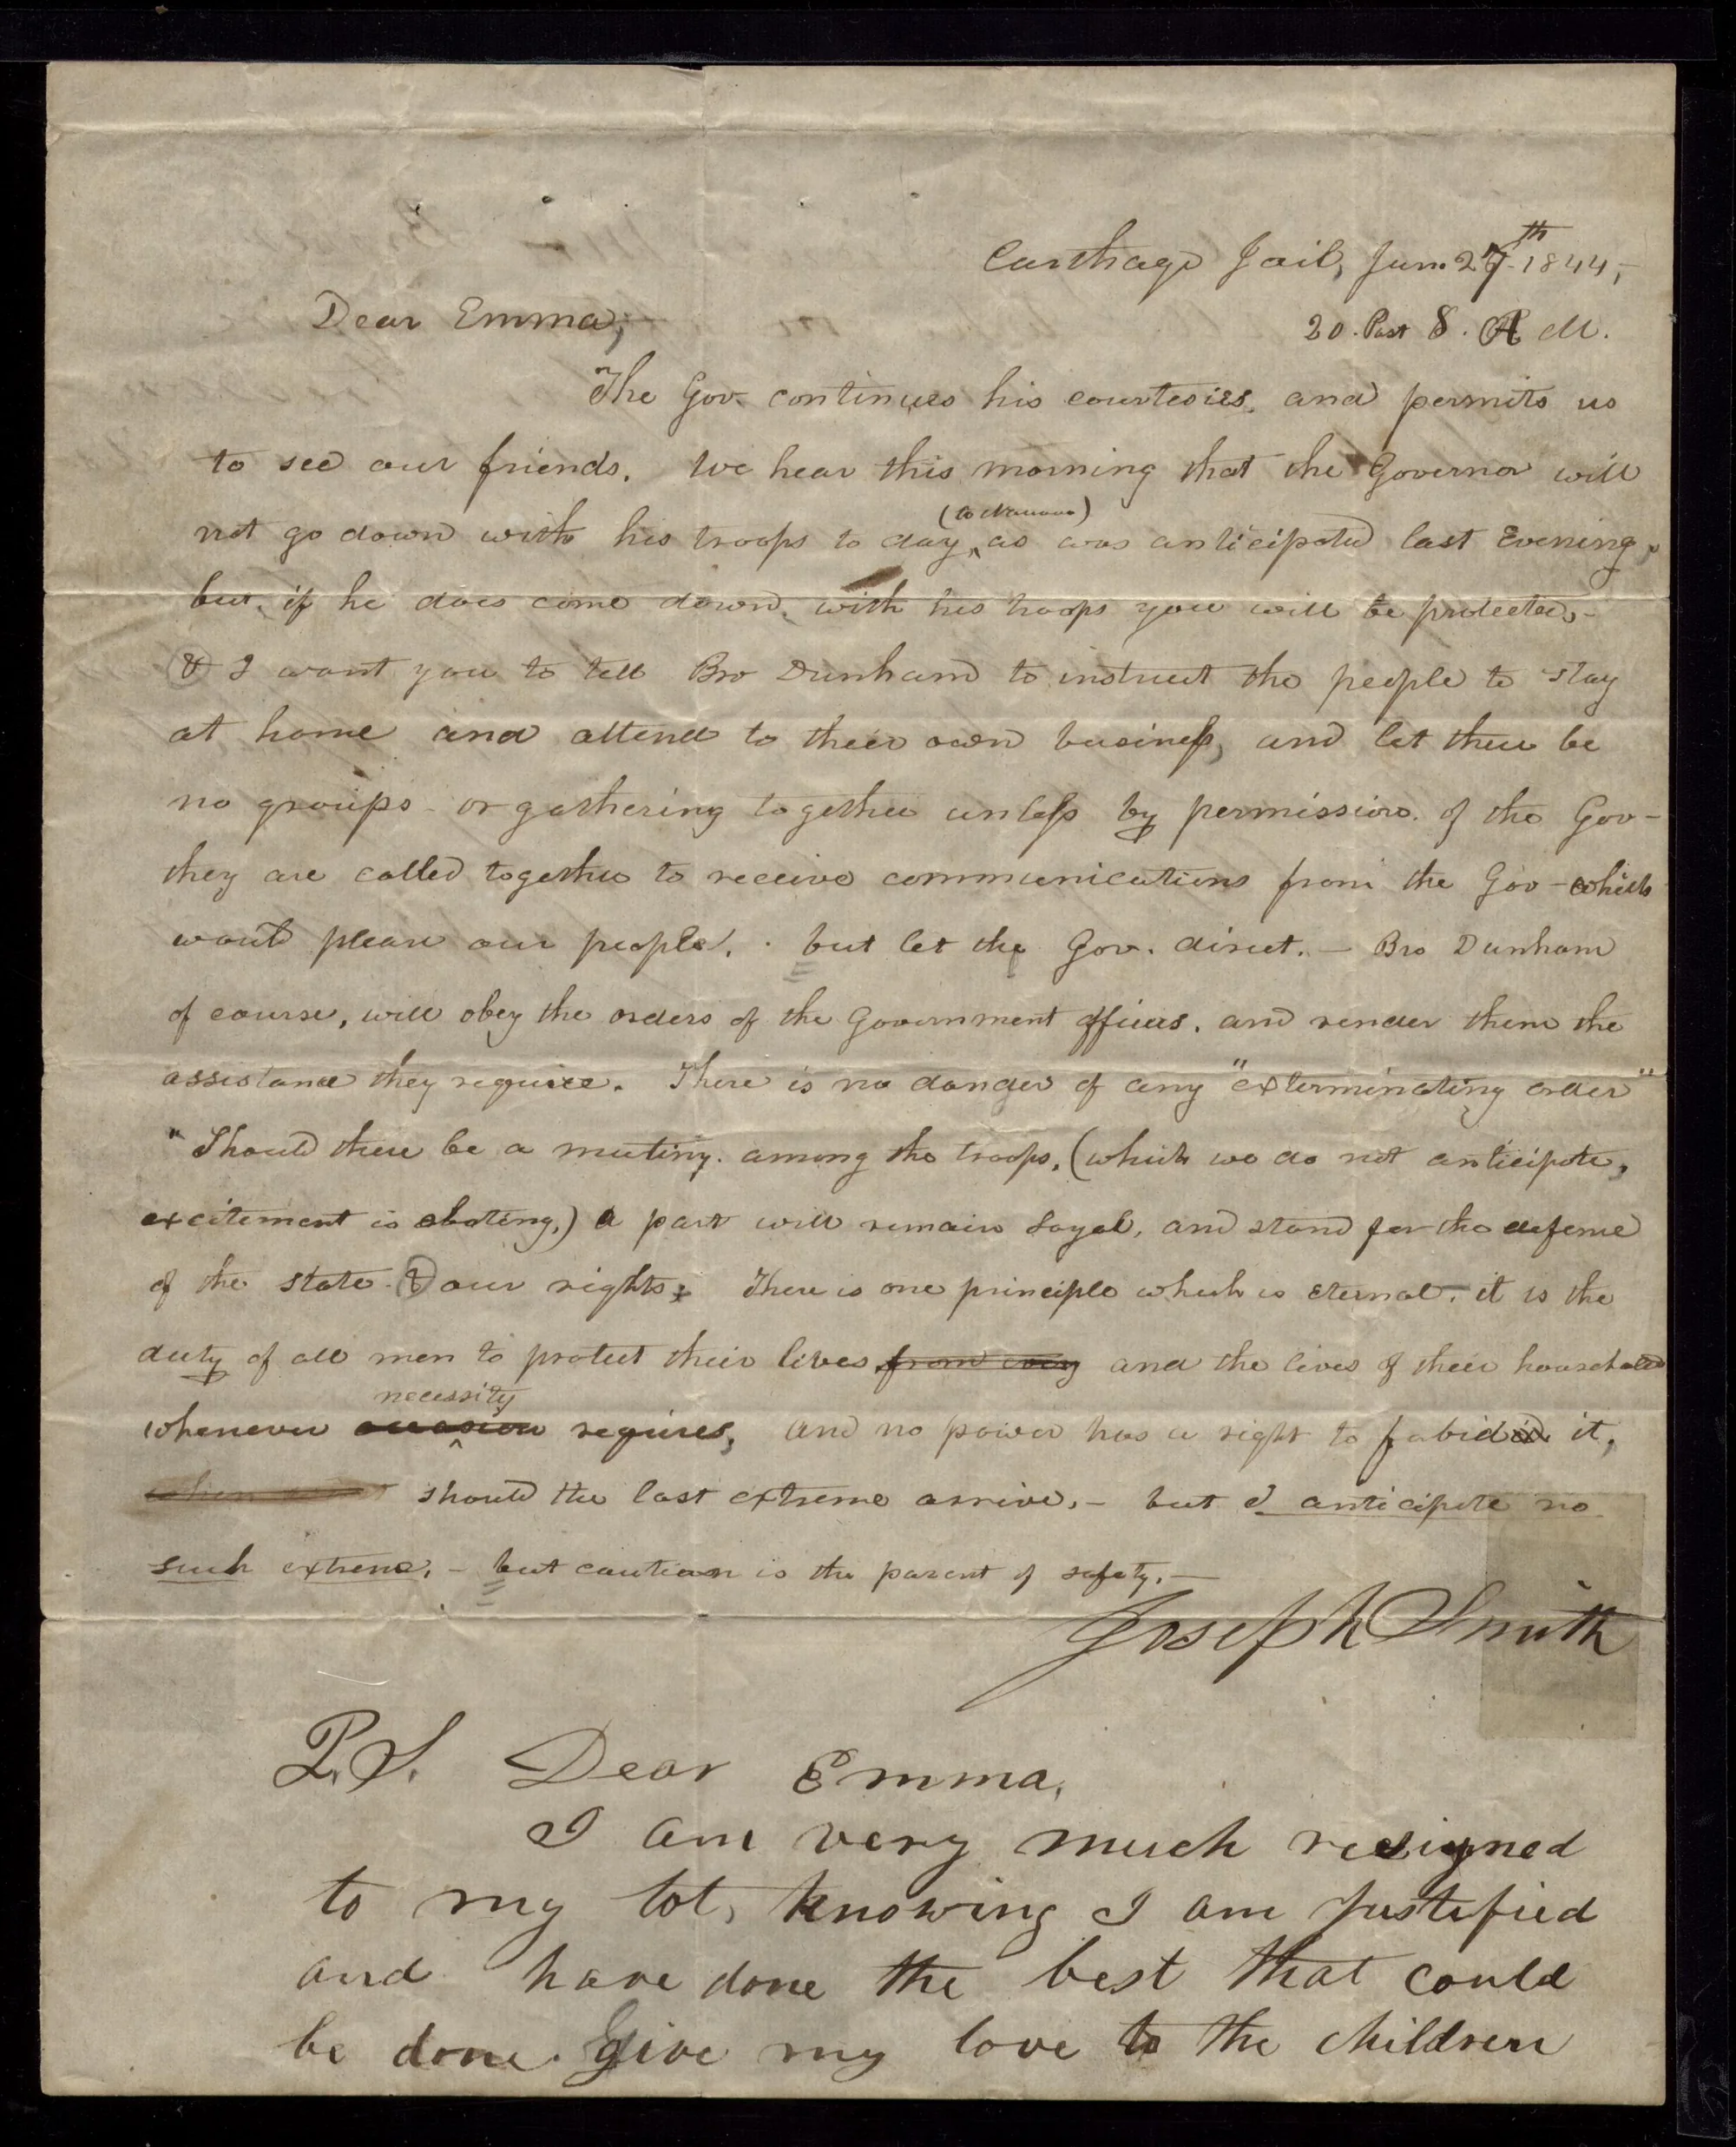 Carthage Jail, Jun. 27th 1844,-
20. Past 8. A M.
Dear Emma;-
The Gov. continues his courtesies, and permits us
to see our friends. We hear this morning that the Governor will
not go down with his troops to day (to Nauvoo) as was anticipated last Evening.
but, if he does come down, with his troops you will be protected,-
& I want you to tell Bro Dunham to instruct the people to stay
at home and attend to their own business, and let there be
no groups - or gathering together unless by permission. of the Gov-
they are called together to receive communications from the Gov - which
would please our people. but let the Gov. direct.- Bro Dunham
of course, will obey the orders of the Government officers, and render them the
assistance they require. There is no danger of any "exterminating order"
"Should there be a mutiny. among the troops, (which we do not anticipate,
excitement is abating,) a part will remain Loyal, and stand for the defence
of the state & our rights; There is one principle which is Eternal, it is the
duty of all men to protect their lives from every and the lives of their household
whenever occasion necessity requires, and no power has a right to forbid it,
should the last extreme arrive,- but I anticipate no
such extreme,- but caution is the parent of safety.-
Joseph Smith
P.S. Dear Emma,
I am very much resigned
to my lot, knowing I am Justified
and have done the best that could
be done. Give my love to the children